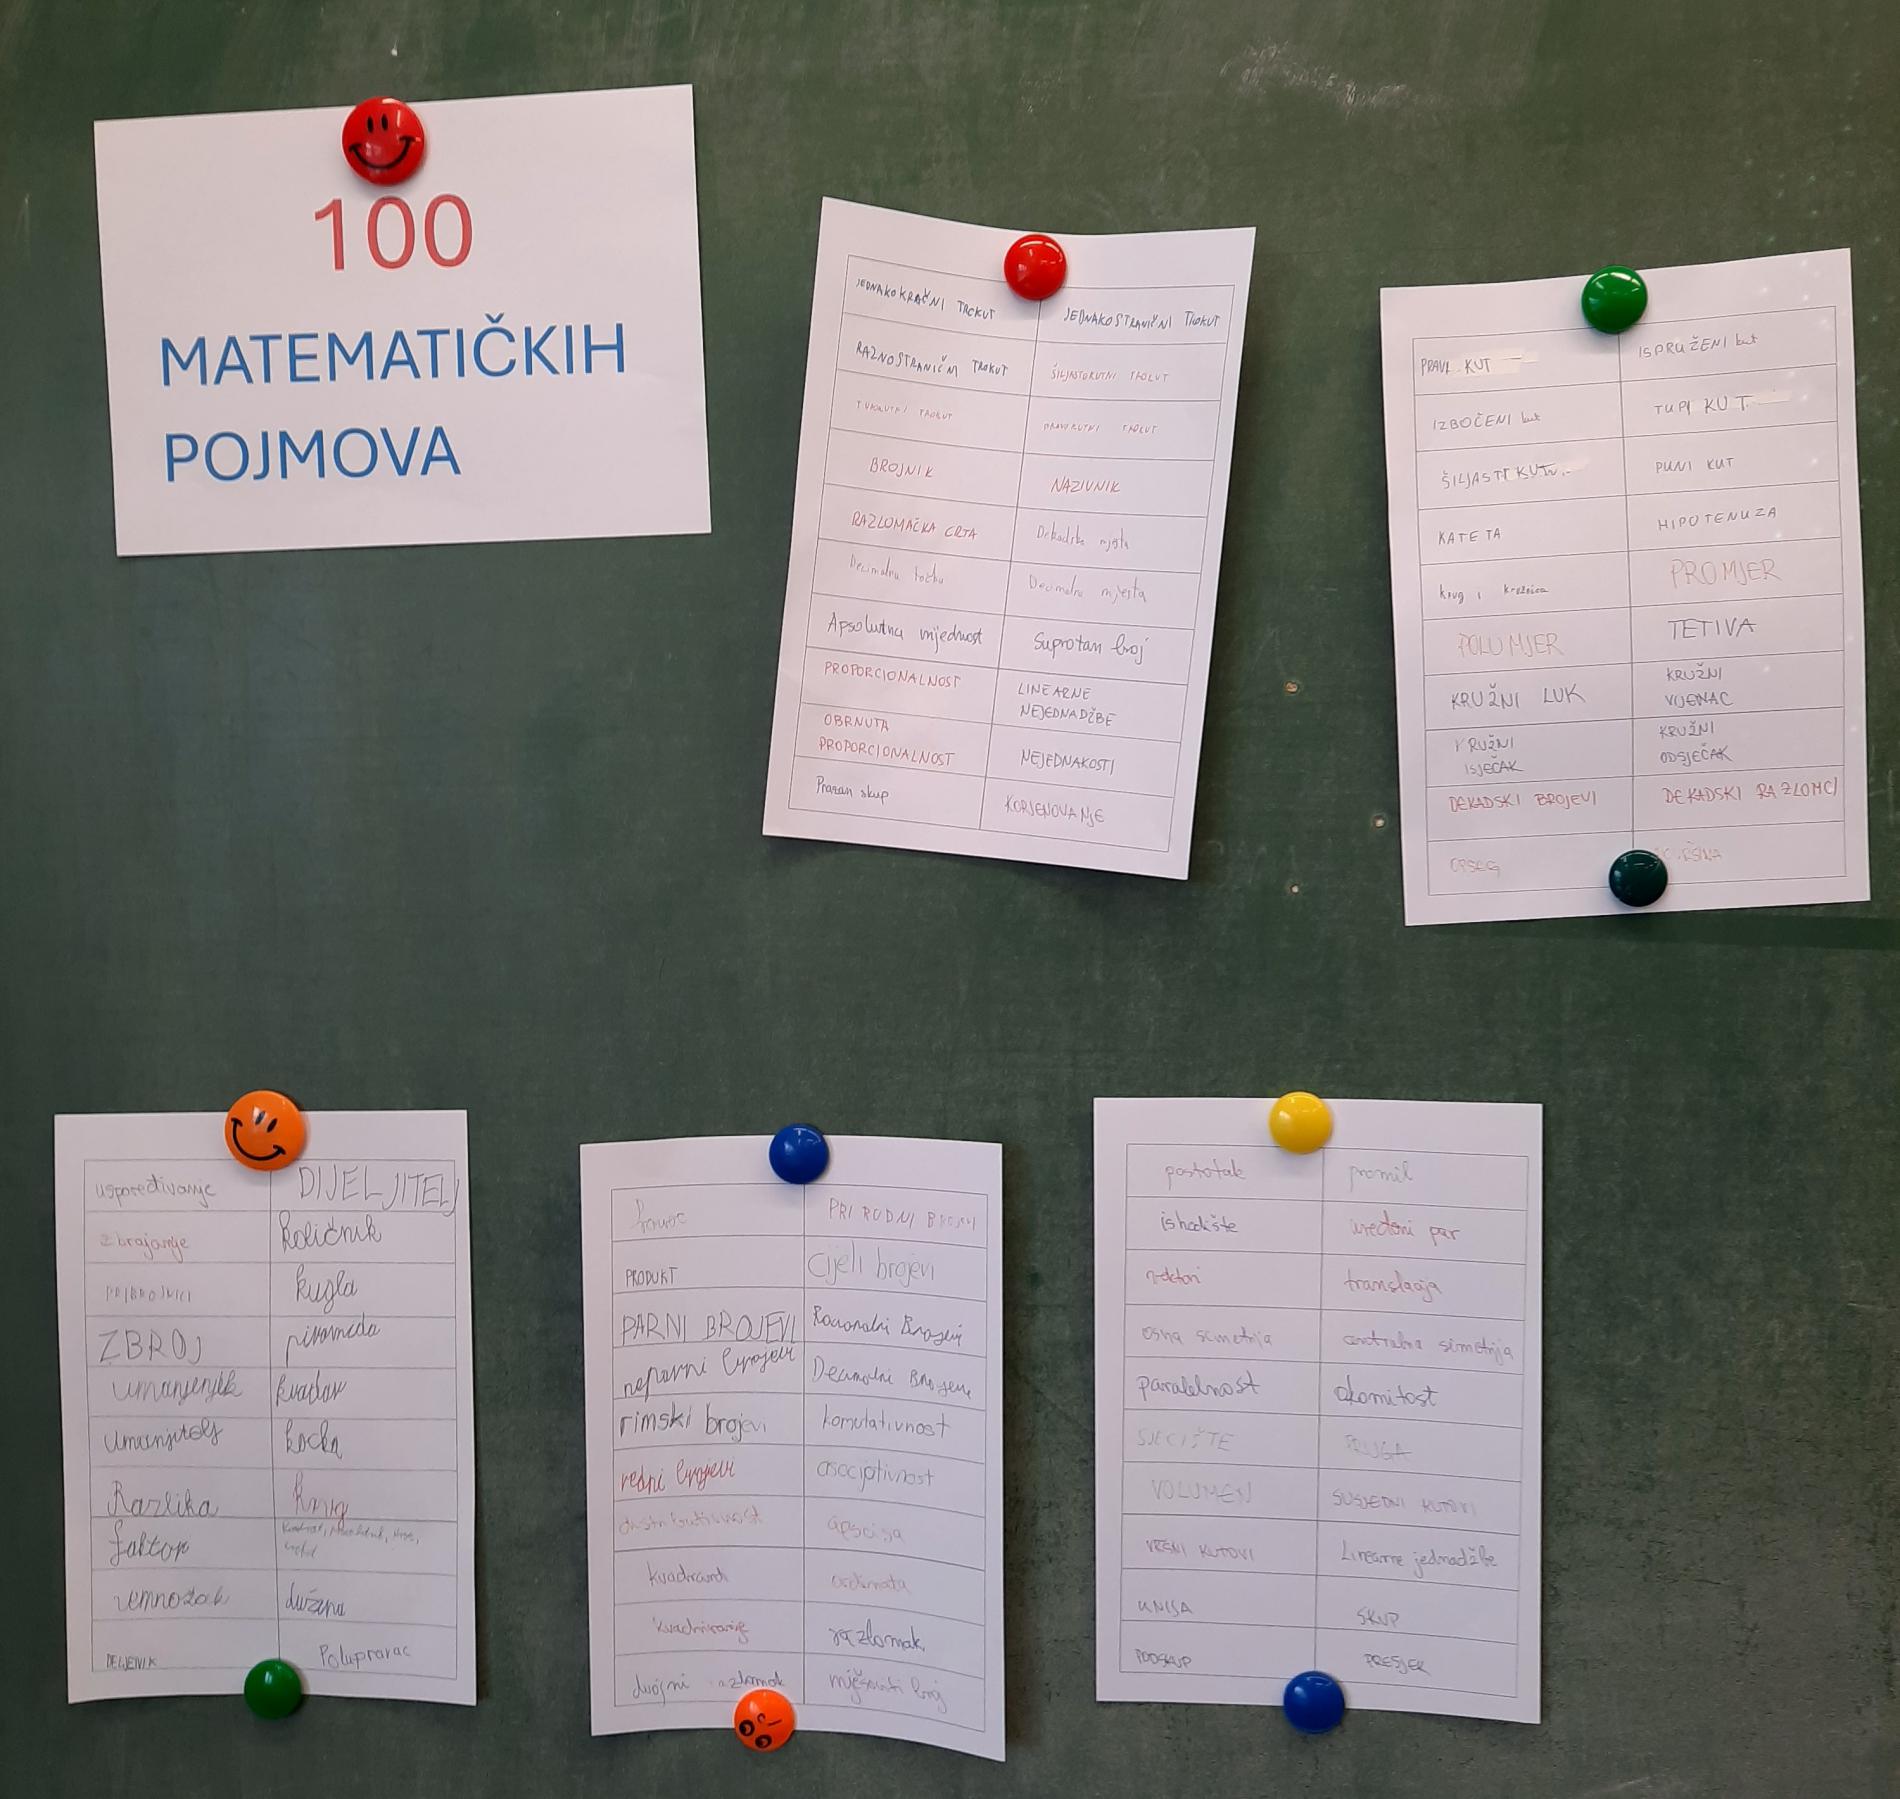 100
MATEMATIČKIH
POJMOVA
JEDNAKOKRAČNI TROKUT
JEDNAKOSTRANIČNI TROKUT
RAZNOSTRANIČNI TROKUT
ŠILJASTOKUTNI TROKUT
TUPOKUTNI TROKUT
PRAVOKUTNI TROKUT
BROJNIK
NAZIVNIK
RAZLOMAČKA CRTA
Dekadska mjesta
Decimalna točka
Decimalna mjesta
Apsolutna vrijednost
Suprotan broj
PROPORCIONALNOST
LINEARNE
NEJEDNADŽBE
OBRNUTA
PROPORCIONALNOST
NEJEDNAKOSTI
Prazan skup
KORJENOVANJE
PRAVI KUT
ISPRUŽENI kut
IZBOČENI kut
TUPI KUT
ŠILJASTI KUT
PUNI KUT
KATETA
HIPOTENUZA
krug i kružnica
PROMJER
POLUMJER
TETIVA
KRUŽNI LUK
KRUŽNI
VIJENAC
KRUŽNI
ISJEČAK
KRUŽNI
ODSJEČAK
DEKADSKI BROJEVI
DEKADSKI RAZLOMCI
OPSEG
uspoređivanje
DIJELJITELJ
zbrajanje
količnik
PRIBROJNICI
kugla
ZBROJ
piramida
umanjenik
kvadar
umanjitelj
kocka
Razlika
krug
faktor
umnožak
dužina
DELJENIK
Polupravac
PRIRODNI BROJEVI
PRODUKT
cijeli brojevi
PARNI BROJEVI
Racionalni Brojevi
neparni brojevi
Decimalni Brojevi
rimski brojevi
komutativnost
redni brojevi
asocijativnost
distributivnost
apscisa
kvadrant
ordinata
kvadriranje
razlomak
dvojni razlomak
mješoviti broj
postotak
promil
ishodište
uređeni par
vektori
translacija
osna simetrija
centralna simetrija
paralelnost
okomitost
SJECIŠTE
PRUGA
VOLUMEN
SUSJEDNI KUTOVI
VRŠNI KUTOVI
Linearne jednadžbe
UNIJA
SKUP
PODSKUP
PRESJEK